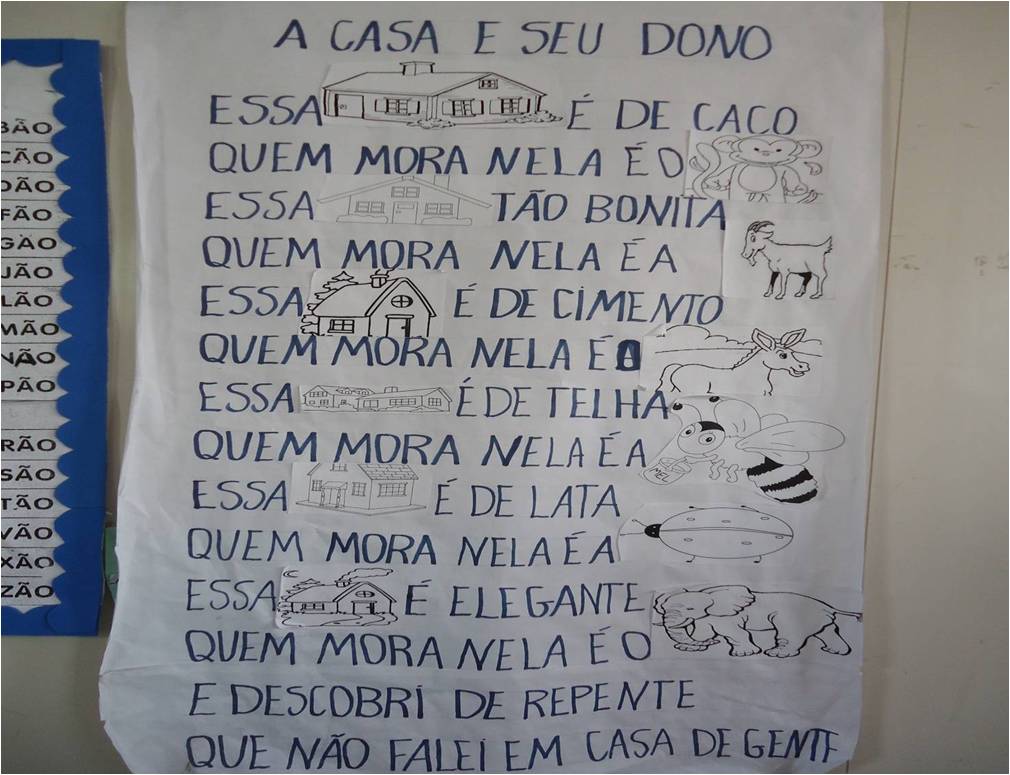 BÃO
CÃO
DÃO
FÃO
GÃO
JÃO
LÃO
MÃO
NÃO
PÃO
RÃO
SÃO
TÃO
VÃO
XÃO
ZÃO
A CASA E SEU DONO
ESSA É DE CACO
QUEM MORA NELA É O
ESSA TÃO BONITA
QUEM MORA NELA É A
ESSA É DE CIMENTO
QUEM MORA NELA É O
ESSA É DE TELHA
QUEM MORA NELA É A
MEL
ESSA É DE LATA
QUEM MORA NELA É A
ESSA É ELEGANTE
QUEM MORA NELA É O
E DESCOBRI DE REPENTE
QUE NÃO FALEI EM CASA DE GENTE